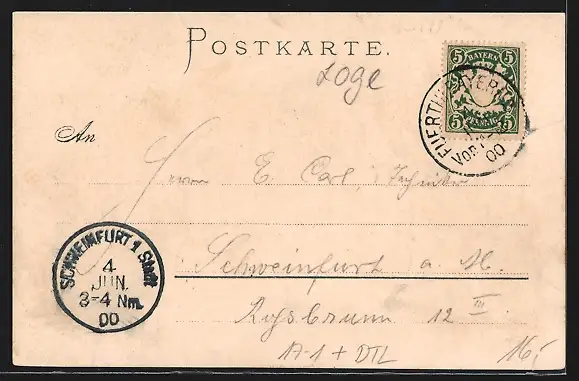 POSTKARTE.
Loge
5 BAYERN 5
5 PFENNIG 5
BAYERN
VOR
00
An
Herrn E. Carl, Techniker
Schweinfurt a. M.
12 III
SCHWEINFURT 1 Stadt
4
JUN.
3-4 Nm.
00
A-1 + DTL
16,-